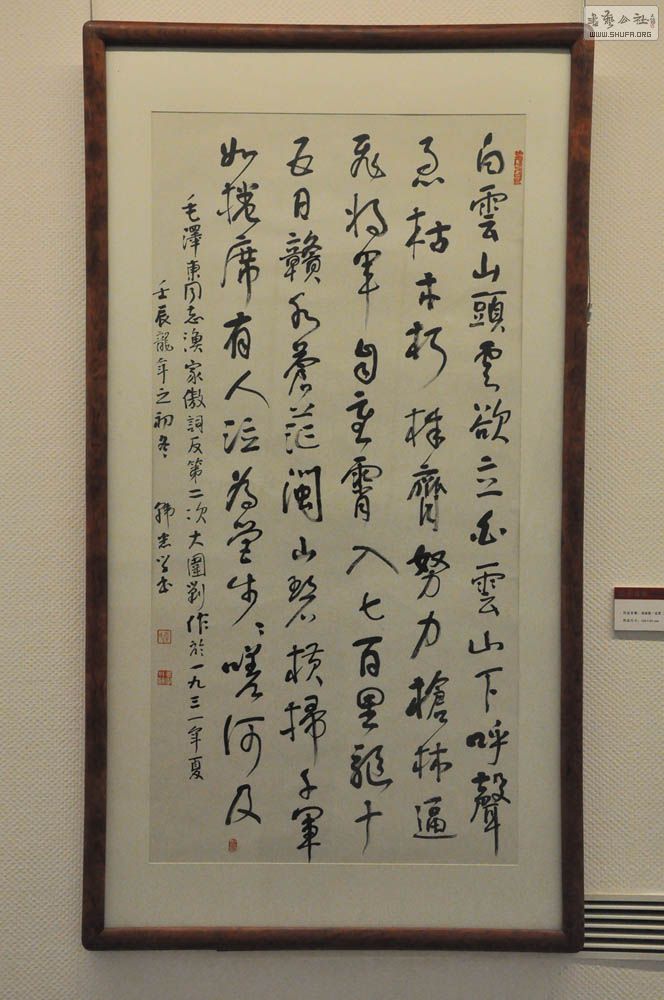 白雲山頭云欲立白雲山下呼聲
急枯木朽株齊努力槍林逼
飛將軍自重霄入七百里驅十
五日贛水蒼茫閩山碧橫掃千軍
如捲席有人泣為營步々嗟何及
毛澤東同志漁家傲詞反第二次大圍剿作於一九三一年夏
壬辰龍年之初冬
書藝公社
WWW.SHUFA.ORG